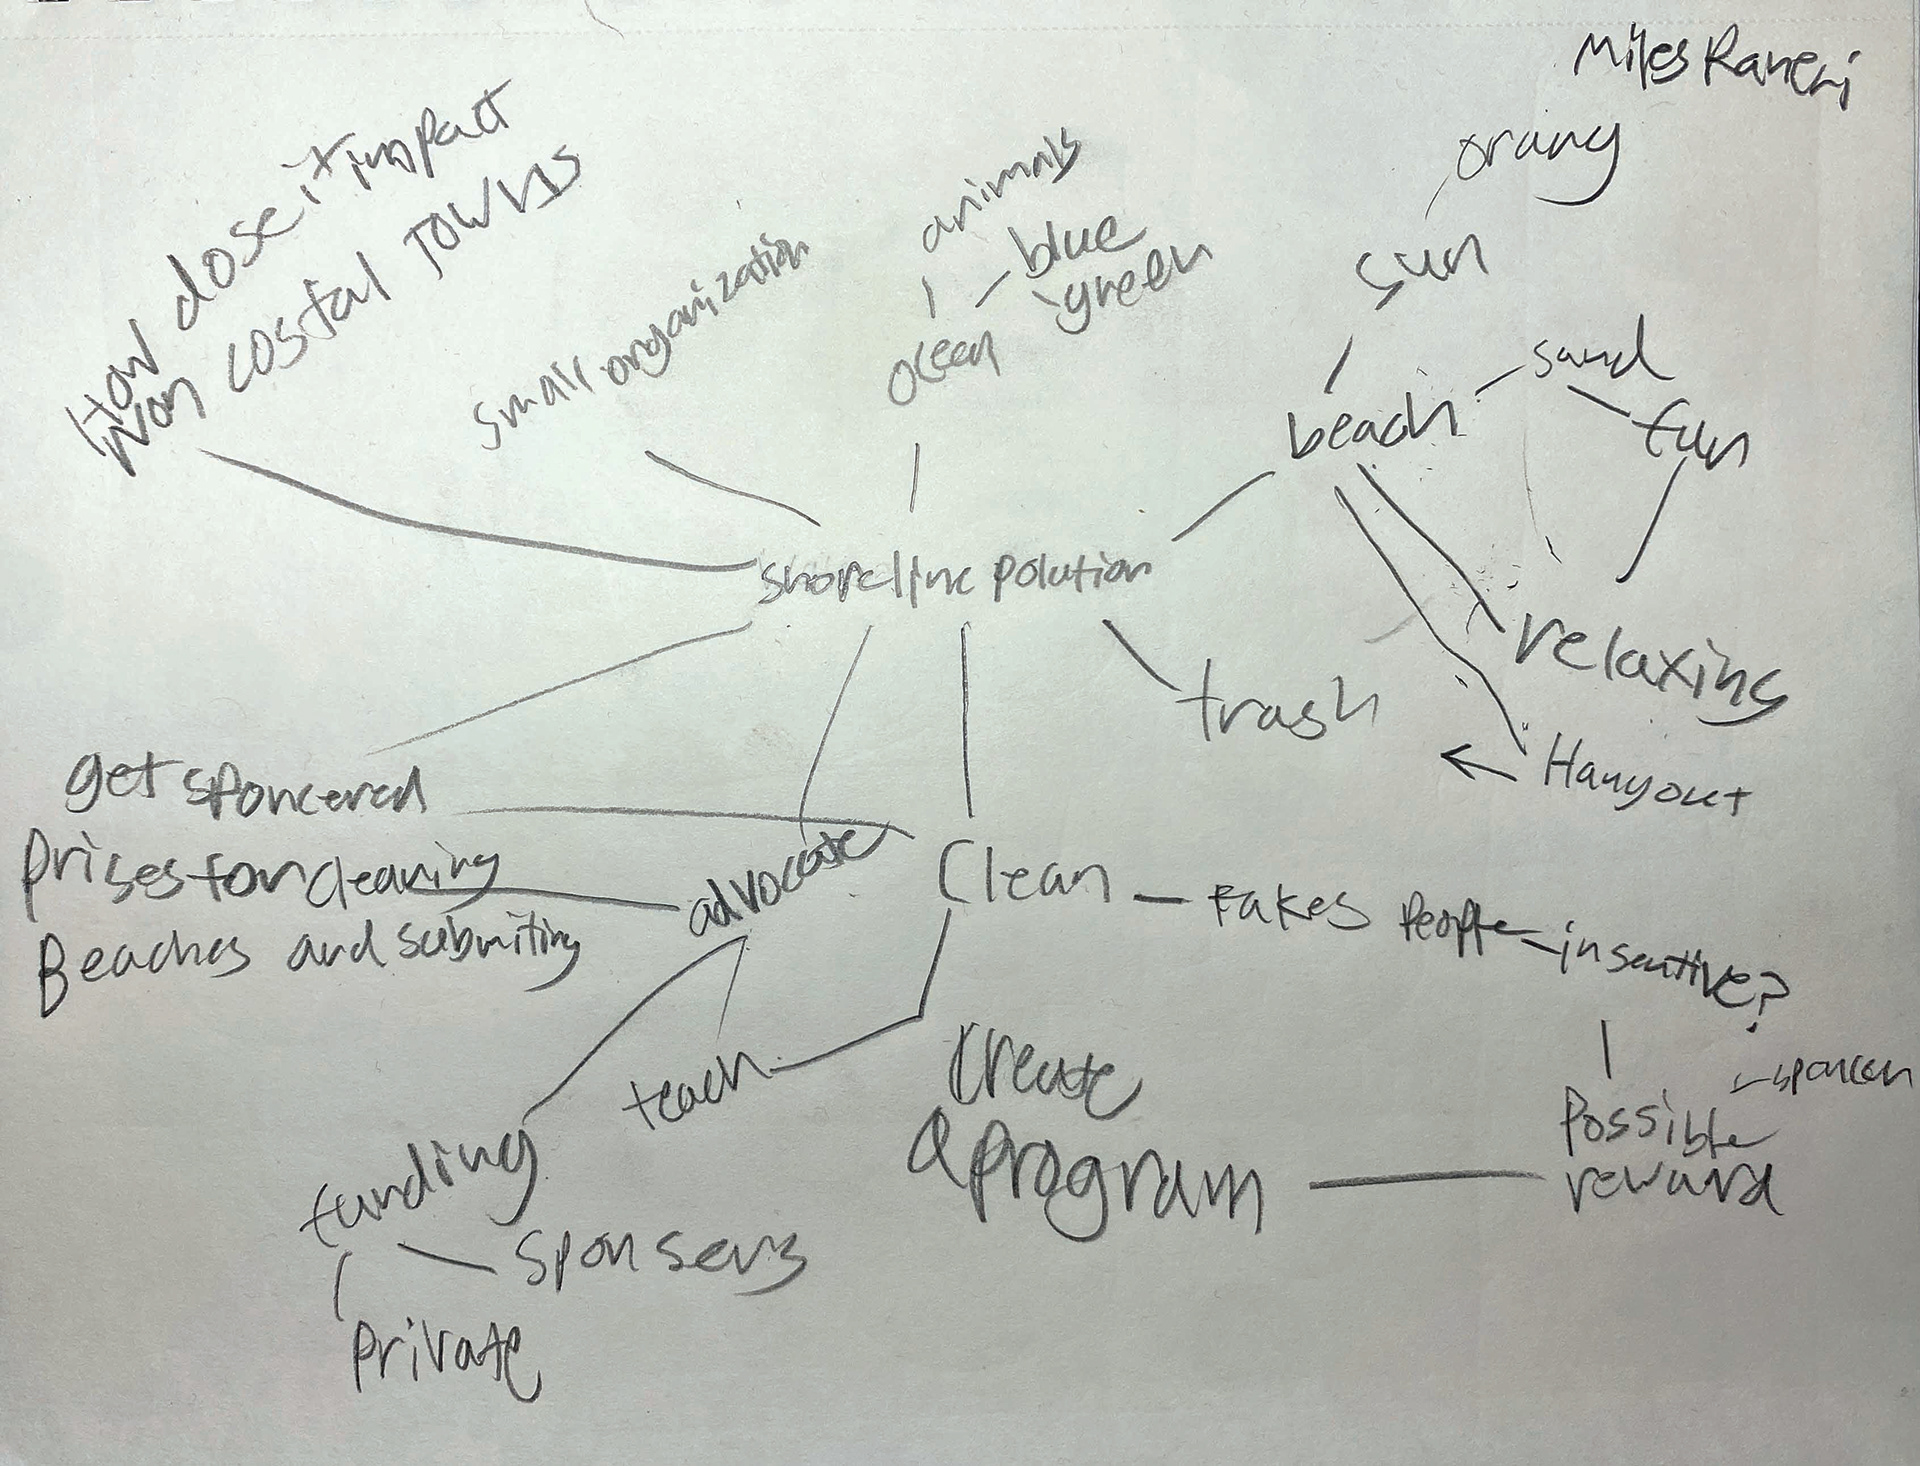 Miles Raneri
orang
sun
How dose it impact
non costal towns
small organization
animals
blue
green
ocean
beach
sand
fun
shoreline polution
relaxing
trash
Hangout
get sponcered
prises for cleaning
Beaches and submiting
advocate
Clean
takes people
insentive?
teach
Create
a program
sponcer
possible
reward
funding
sponsers
private